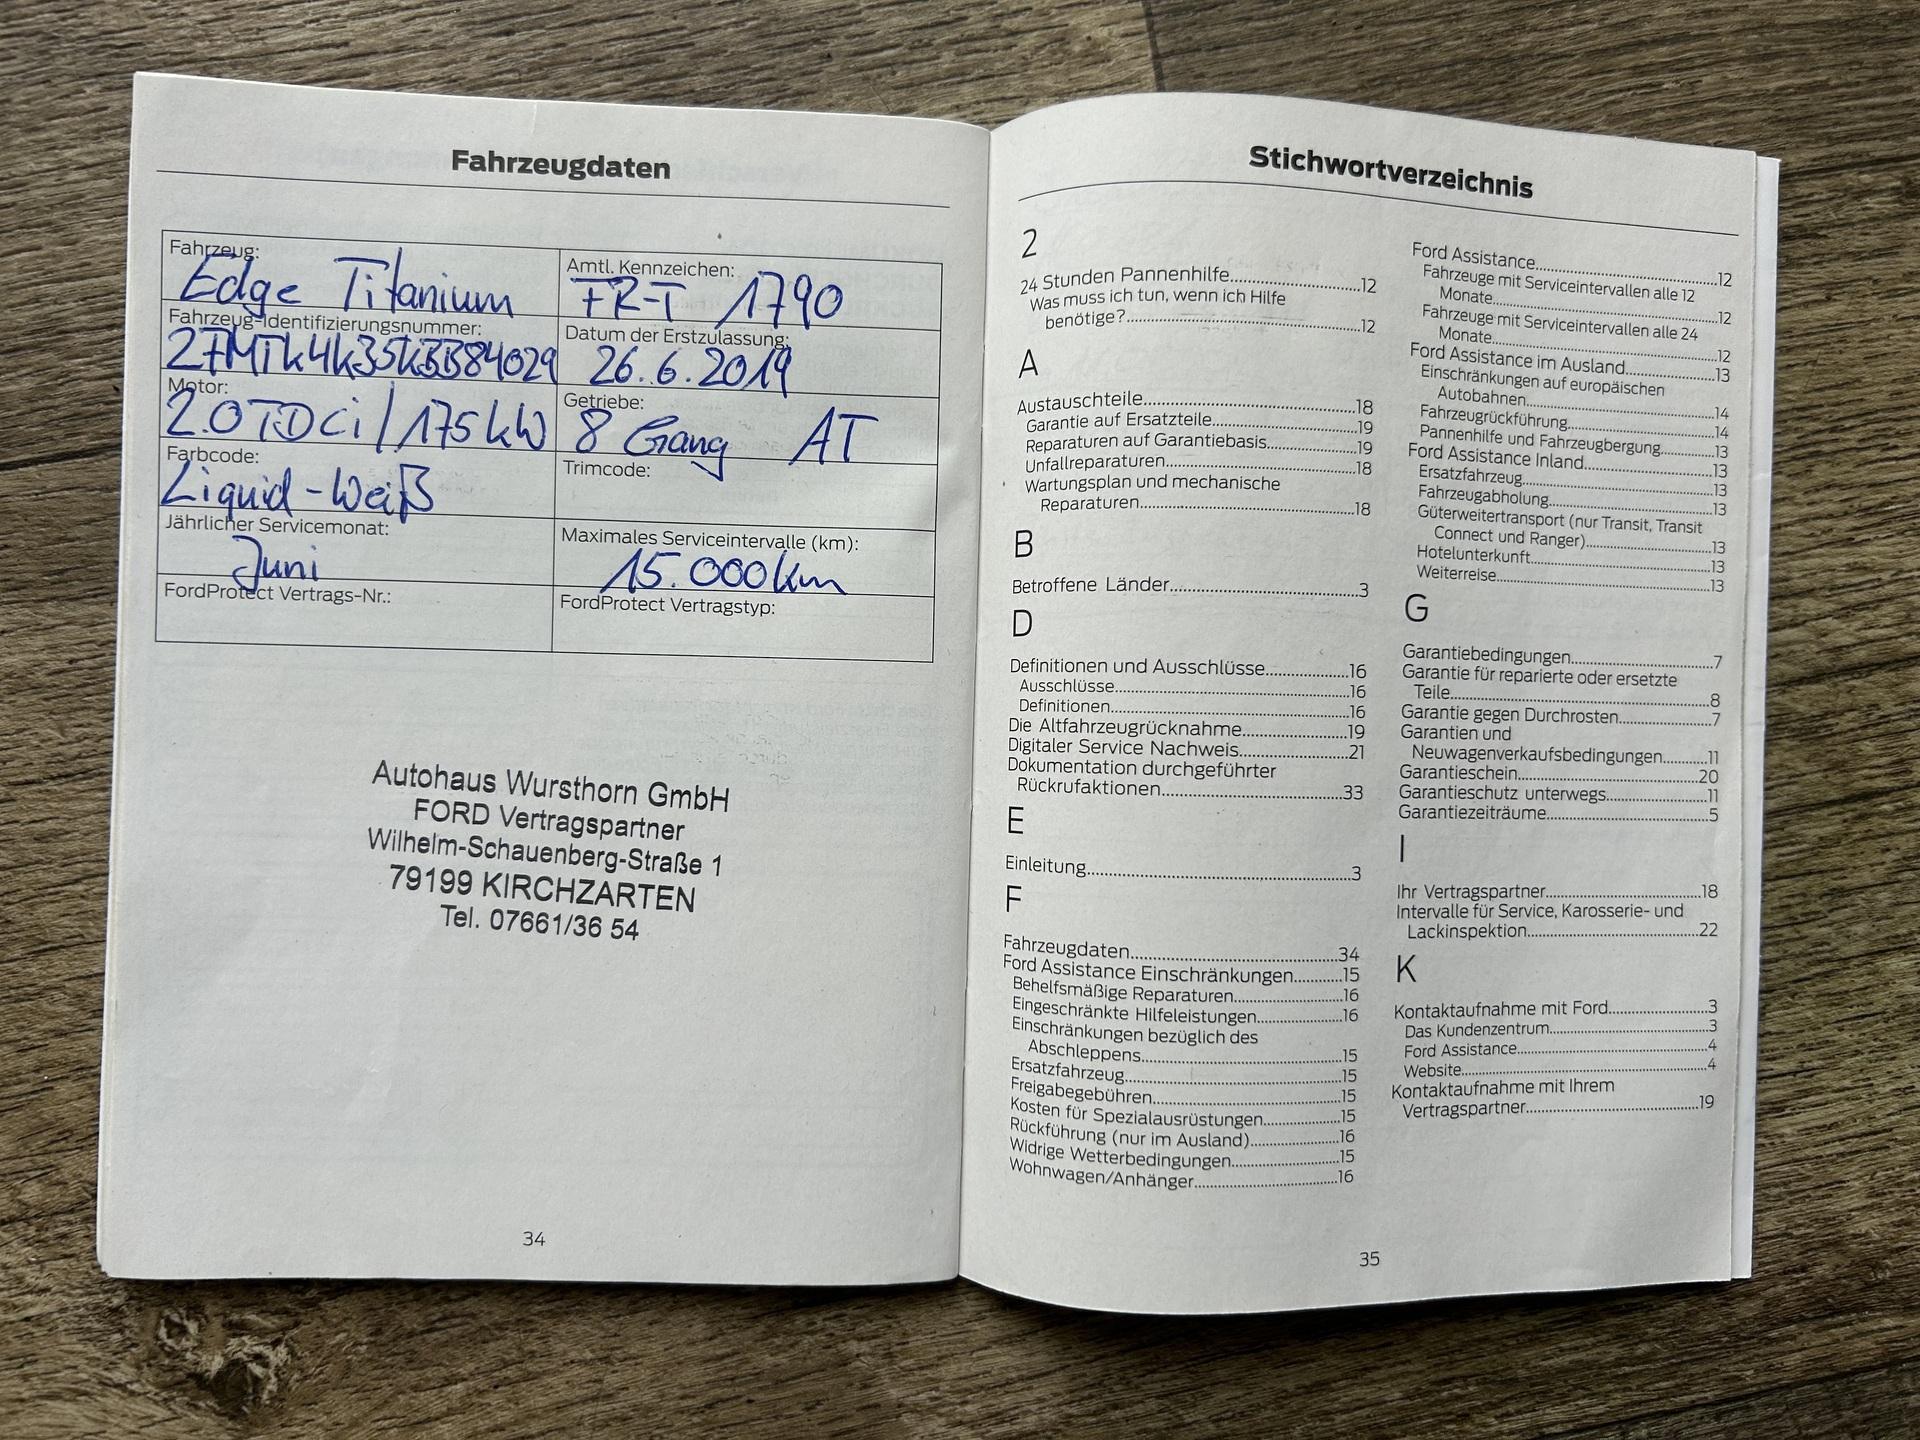 Fahrzeugdaten
Fahrzeug:
Edge Titanium
Amtl. Kennzeichen:
FR-T 1790
Fahrzeug-Identifizierungsnummer:
2FMTK4K35KBB84029
Datum der Erstzulassung:
26.6.2019
Motor:
2.0 TDCi / 175 kW
Getriebe:
8 Gang AT
Farbcode:
Liquid-Weiß
Trimcode:
Jährlicher Servicemonat:
Juni
Maximales Serviceintervalle (km):
15.000 km
FordProtect Vertrags-Nr.:
FordProtect Vertragstyp:
Autohaus Wursthorn GmbH
FORD Vertragspartner
Wilhelm-Schauenberg-Straße 1
79199 KIRCHZARTEN
Tel. 07661/36 54
34
Stichwortverzeichnis
2
24 Stunden Pannenhilfe...12
Was muss ich tun, wenn ich Hilfe
benötige?...12
A
Austauschteile...18
Garantie auf Ersatzteile...19
Reparaturen auf Garantiebasis...19
Unfallreparaturen...18
Wartungsplan und mechanische
Reparaturen...18
B
Betroffene Länder...3
D
Definitionen und Ausschlüsse...16
Ausschlüsse...16
Definitionen...16
Die Altfahrzeugrücknahme...19
Digitaler Service Nachweis...21
Dokumentation durchgeführter
Rückrufaktionen...33
E
Einleitung...3
F
Fahrzeugdaten...34
Ford Assistance Einschränkungen...15
Behelfsmäßige Reparaturen...16
Eingeschränkte Hilfeleistungen...16
Einschränkungen bezüglich des
Abschleppens...15
Ersatzfahrzeug...15
Freigabegebühren...15
Kosten für Spezialausrüstungen...15
Rückführung (nur im Ausland)...16
Widrige Wetterbedingungen...15
Wohnwagen/Anhänger...16
Ford Assistance...12
Fahrzeuge mit Serviceintervallen alle 12
Monate...12
Fahrzeuge mit Serviceintervallen alle 24
Monate...12
Ford Assistance im Ausland...13
Einschränkungen auf europäischen
Autobahnen...14
Fahrzeugrückführung...14
Pannenhilfe und Fahrzeugbergung...13
Ford Assistance Inland...13
Ersatzfahrzeug...13
Fahrzeugabholung...13
Güterweitertransport (nur Transit, Transit
Connect und Ranger)...13
Hotelunterkunft...13
Weiterreise...13
G
Garantiebedingungen...7
Garantie für reparierte oder ersetzte
Teile...8
Garantie gegen Durchrosten...7
Garantien und
Neuwagenverkaufsbedingungen...11
Garantieschein...20
Garantieschutz unterwegs...11
Garantiezeiträume...5
I
Ihr Vertragspartner...18
Intervalle für Service, Karosserie- und
Lackinspektion...22
K
Kontaktaufnahme mit Ford...3
Das Kundenzentrum...3
Ford Assistance...4
Website...4
Kontaktaufnahme mit Ihrem
Vertragspartner...19
35